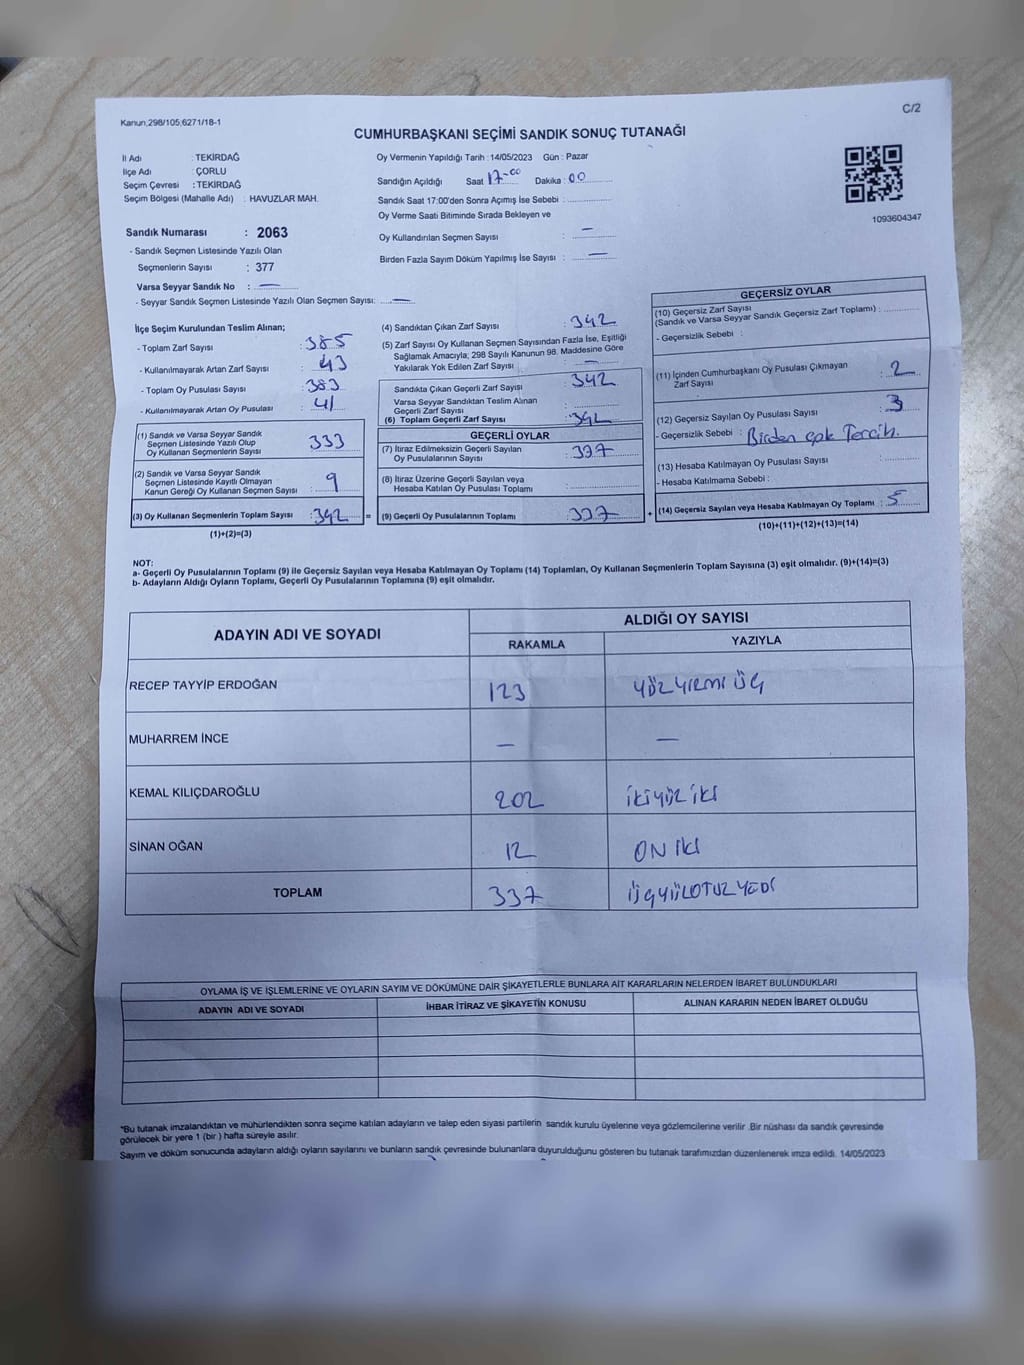 Kanun,298/105,6271/18-1
C/2
CUMHURBAŞKANI SEÇİMİ SANDIK SONUÇ TUTANAĞI
İl Adı : TEKİRDAĞ
İlçe Adı : ÇORLU
Seçim Çevresi : TEKİRDAĞ
Seçim Bölgesi (Mahalle Adı) : HAVUZLAR MAH.
Oy Vermenin Yapıldığı Tarih : 14/05/2023 Gün : Pazar
Sandığın Açıldığı Saat 17-00 Dakika : 00
Sandık Saat 17:00'den Sonra Açımış İse Sebebi :
Oy Verme Saati Bitiminde Sırada Bekleyen ve
Oy Kullandırılan Seçmen Sayısı : —
Birden Fazla Sayım Döküm Yapılmış İse Sayısı : —
1093604347
Sandık Numarası : 2063
- Sandık Seçmen Listesinde Yazılı Olan
Seçmenlerin Sayısı : 377
Varsa Seyyar Sandık No : —
- Seyyar Sandık Seçmen Listesinde Yazılı Olan Seçmen Sayısı: —
İlçe Seçim Kurulundan Teslim Alınan;
- Toplam Zarf Sayısı : 385
- Kullanılmayarak Artan Zarf Sayısı : 43
- Toplam Oy Pusulası Sayısı : 383
- Kullanılmayarak Artan Oy Pusulası : 41
(1) Sandık ve Varsa Seyyar Sandık
Seçmen Listesinde Yazılı Olup
Oy Kullanan Seçmenlerin Sayısı : 333
(2) Sandık ve Varsa Seyyar Sandık
Seçmen Listesinde Kayıtlı Olmayan
Kanun Gereği Oy Kullanan Seçmen Sayısı : 9
(3) Oy Kullanan Seçmenlerin Toplam Sayısı : 342 =
(1)+(2)=(3)
(4) Sandıktan Çıkan Zarf Sayısı : 342
(5) Zarf Sayısı Oy Kullanan Seçmen Sayısından Fazla İse, Eşitliği
Sağlamak Amacıyla; 298 Sayılı Kanunun 98. Maddesine Göre
Yakılarak Yok Edilen Zarf Sayısı : —
Sandıkta Çıkan Geçerli Zarf Sayısı : 342
Varsa Seyyar Sandıktan Teslim Alınan
Geçerli Zarf Sayısı :
(6) Toplam Geçerli Zarf Sayısı : 342
GEÇERLİ OYLAR
(7) İtiraz Edilmeksizin Geçerli Sayılan
Oy Pusulalarının Sayısı : 337
(8) İtiraz Üzerine Geçerli Sayılan veya
Hesaba Katılan Oy Pusulası Toplamı :
(9) Geçerli Oy Pusulalarının Toplamı : 337 +
GEÇERSİZ OYLAR
(10) Geçersiz Zarf Sayısı
(Sandık ve Varsa Seyyar Sandık Geçersiz Zarf Toplamı) :
- Geçersizlik Sebebi :
(11) İçinden Cumhurbaşkanı Oy Pusulası Çıkmayan
Zarf Sayısı : 2
(12) Geçersiz Sayılan Oy Pusulası Sayısı : 3
- Geçersizlik Sebebi : Birden çok Tercih.
(13) Hesaba Katılmayan Oy Pusulası Sayısı :
- Hesaba Katılmama Sebebi :
(14) Geçersiz Sayılan veya Hesaba Katılmayan Oy Toplamı : 5
(10)+(11)+(12)+(13)=(14)
NOT:
a- Geçerli Oy Pusulalarının Toplamı (9) ile Geçersiz Sayılan veya Hesaba Katılmayan Oy Toplamı (14) Toplamları, Oy Kullanan Seçmenlerin Toplam Sayısına (3) eşit olmalıdır. (9)+(14)=(3)
b- Adayların Aldığı Oyların Toplamı, Geçerli Oy Pusulalarının Toplamına (9) eşit olmalıdır.
ADAYIN ADI VE SOYADI ALDIĞI OY SAYISI
RAKAMLA YAZIYLA
RECEP TAYYİP ERDOĞAN 123 YÜZ YİRMİ ÜÇ
MUHARREM İNCE — —
KEMAL KILIÇDAROĞLU 202 İKİYÜZ İKİ
SİNAN OĞAN 12 ON İKİ
TOPLAM 337 ÜÇYÜZOTUZ YEDİ
OYLAMA İŞ VE İŞLEMLERİNE VE OYLARIN SAYIM VE DÖKÜMÜNE DAİR ŞİKAYETLERLE BUNLARA AİT KARARLARIN NELERDEN İBARET BULUNDUKLARI
ADAYIN ADI VE SOYADI İHBAR İTİRAZ VE ŞİKAYETİN KONUSU ALINAN KARARIN NEDEN İBARET OLDUĞU
*Bu tutanak imzalandıktan ve mühürlendikten sonra seçime katılan adayların ve talep eden siyasi partilerin sandık kurulu üyelerine veya gözlemcilerine verilir .Bir nüshası da sandık çevresinde
görülecek bir yere 1 (bir ) hafta süreyle asılır.
Sayım ve döküm sonucunda adayların aldığı oyların sayılarını ve bunların sandık çevresinde bulunanlara duyurulduğunu gösteren bu tutanak tarafımızdan düzenlenerek imza edildi. 14/05/2023